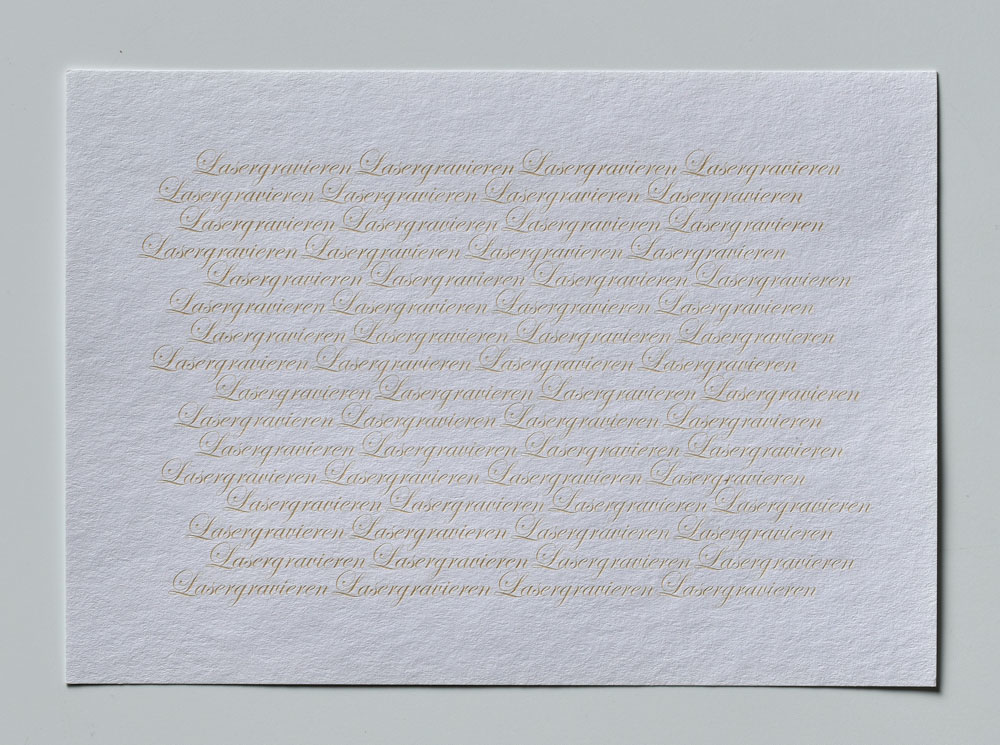 Lasergravieren Lasergravieren Lasergravieren Lasergravieren
Lasergravieren Lasergravieren Lasergravieren Lasergravieren
Lasergravieren Lasergravieren Lasergravieren Lasergravieren
Lasergravieren Lasergravieren Lasergravieren Lasergravieren
Lasergravieren Lasergravieren Lasergravieren Lasergravieren
Lasergravieren Lasergravieren Lasergravieren Lasergravieren
Lasergravieren Lasergravieren Lasergravieren Lasergravieren
Lasergravieren Lasergravieren Lasergravieren Lasergravieren
Lasergravieren Lasergravieren Lasergravieren Lasergravieren
Lasergravieren Lasergravieren Lasergravieren Lasergravieren
Lasergravieren Lasergravieren Lasergravieren Lasergravieren
Lasergravieren Lasergravieren Lasergravieren Lasergravieren
Lasergravieren Lasergravieren Lasergravieren Lasergravieren
Lasergravieren Lasergravieren Lasergravieren Lasergravieren
Lasergravieren Lasergravieren Lasergravieren Lasergravieren
Lasergravieren Lasergravieren Lasergravieren Lasergravieren